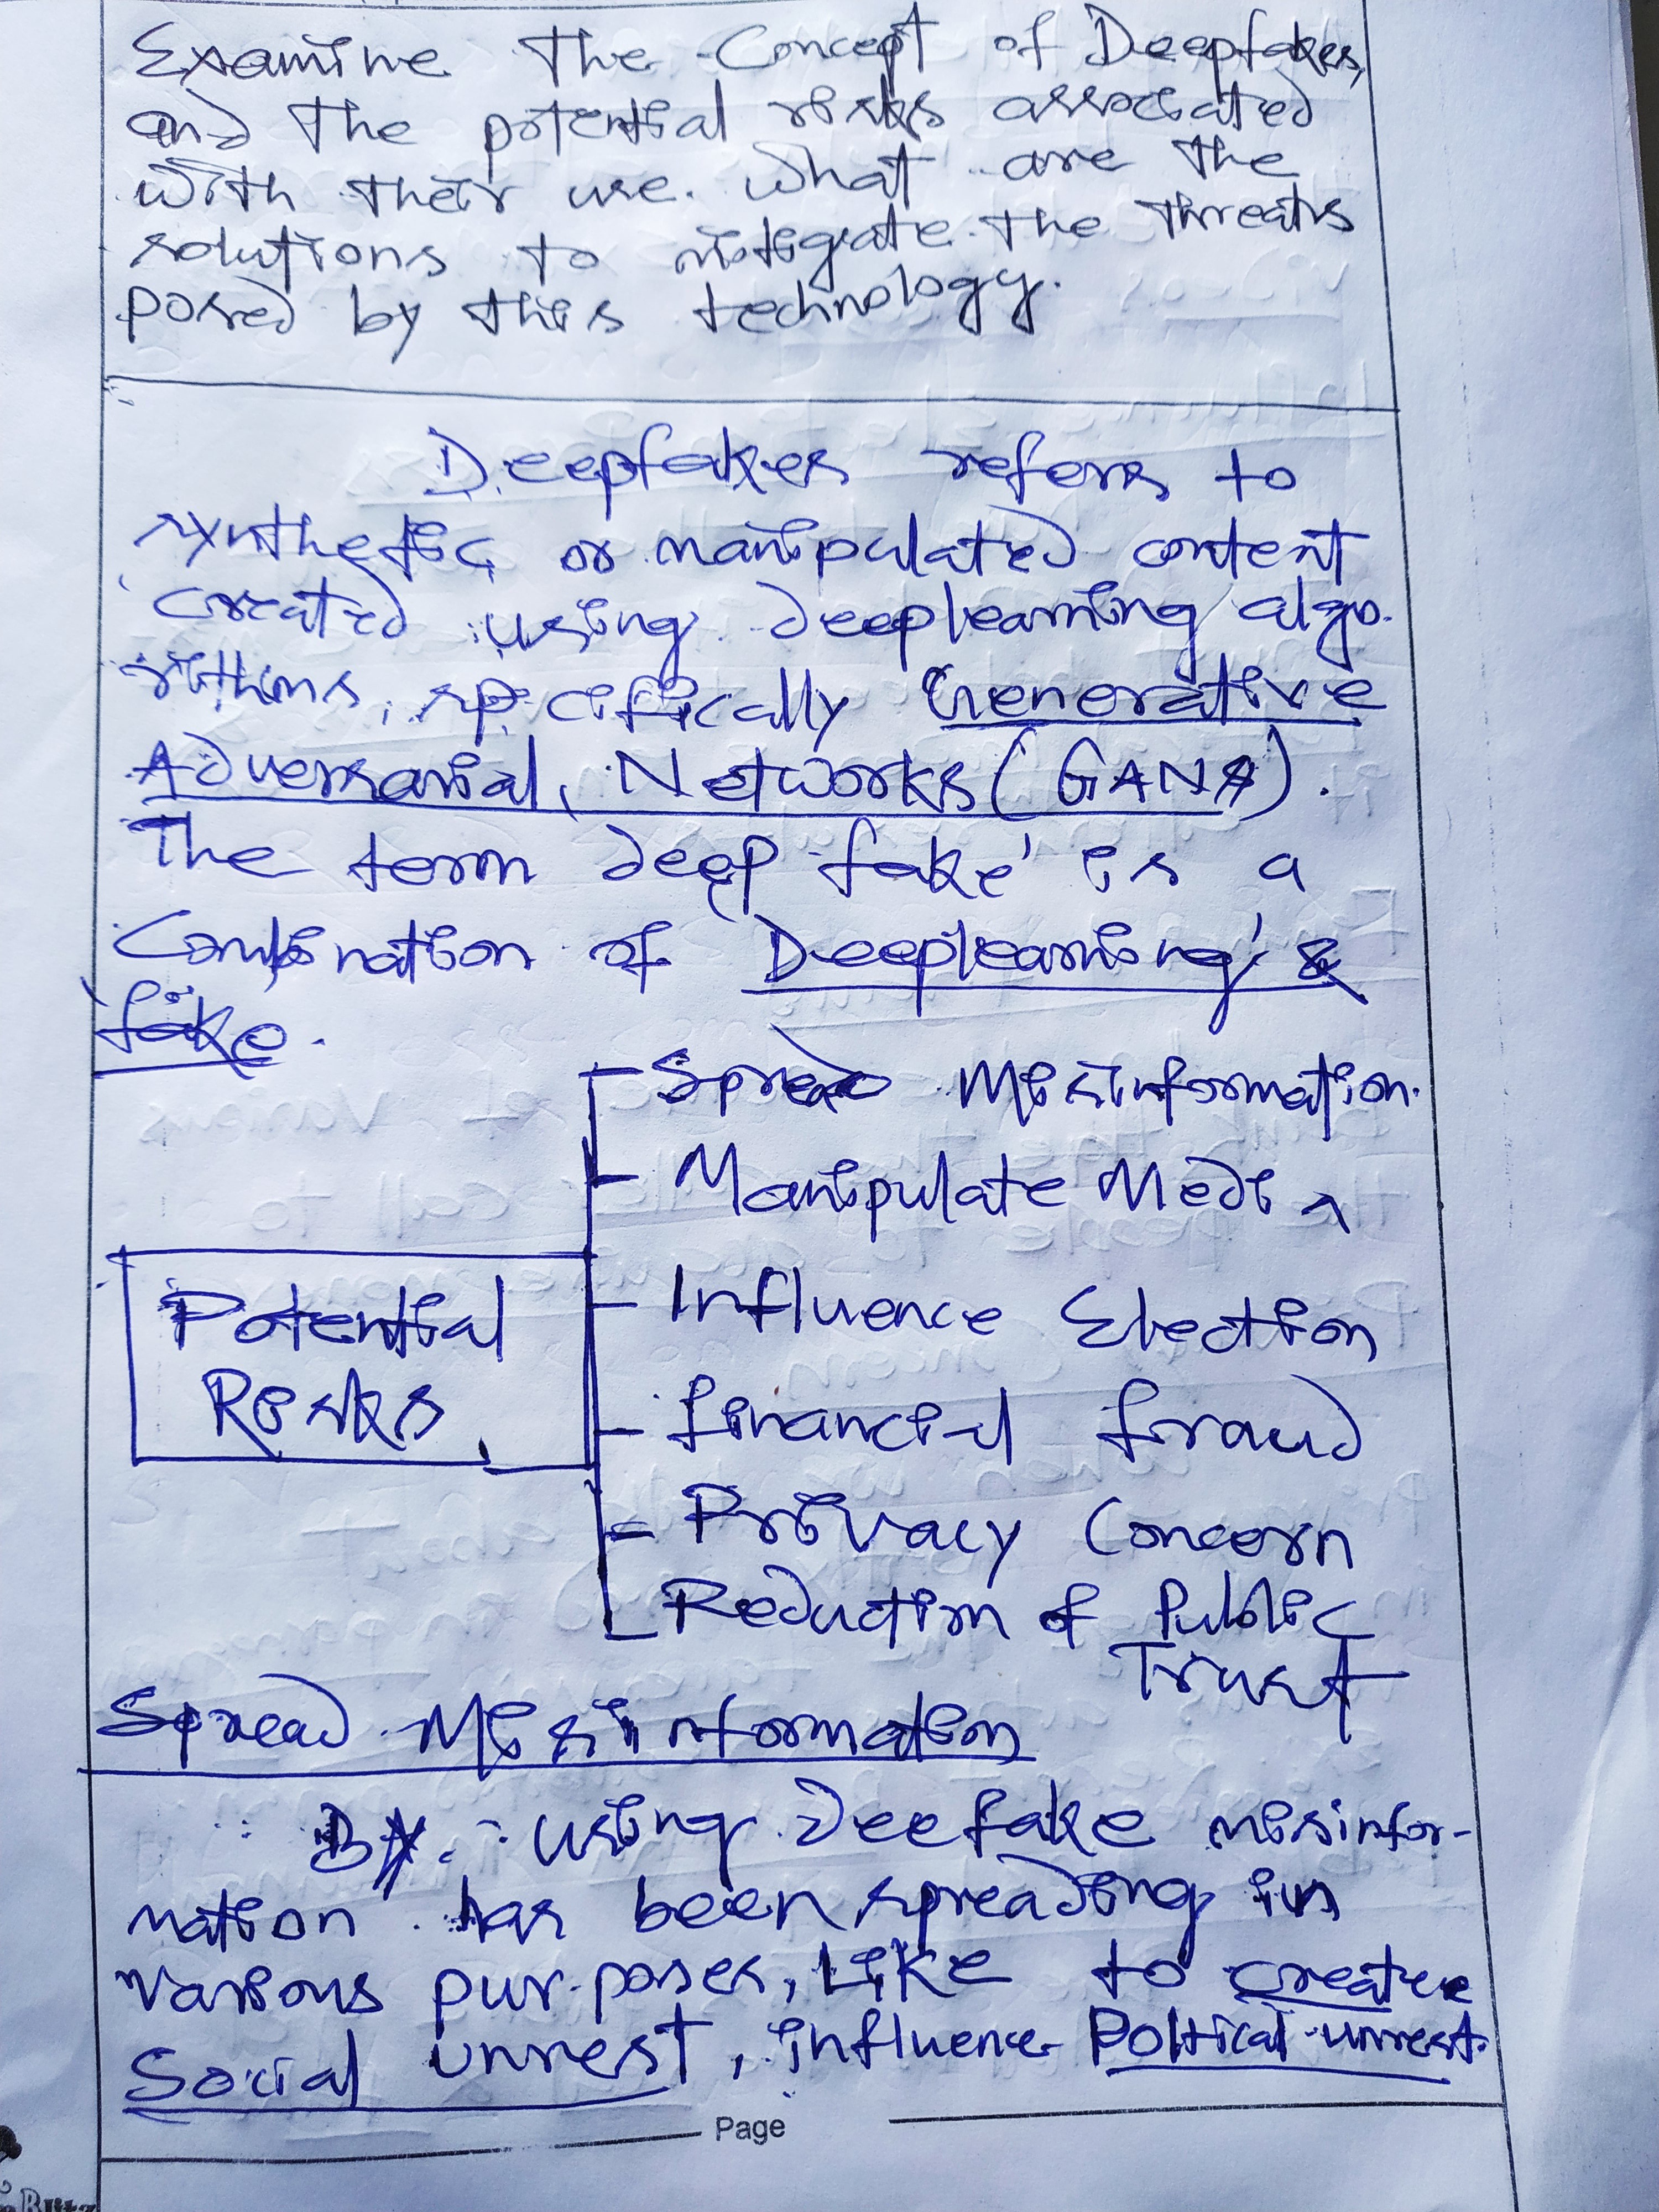 Examine the Concept of Deepfakes,
and the potential risks associated
with their use. What are the
solutions to mitigate the threats
posed by this technology.
Deepfakes refers to
synthetic or manipulated content
created using deeplearning algo-
rithms, specifically Generative
Adversarial, Networks (GANs).
The term deep fake' is a
Combination of Deeplearning' &
fake.
Spread Misinformation.
Manipulate Media
Influence Election
Potential
Risks
financial fraud
Privacy Concern
Reduction of Public
Trust
Spread Misinformation
By using Deefake misinfor-
mation has been spreading in
various purposes, Like to create
Social unrest, influence Poltical unrest.
Page